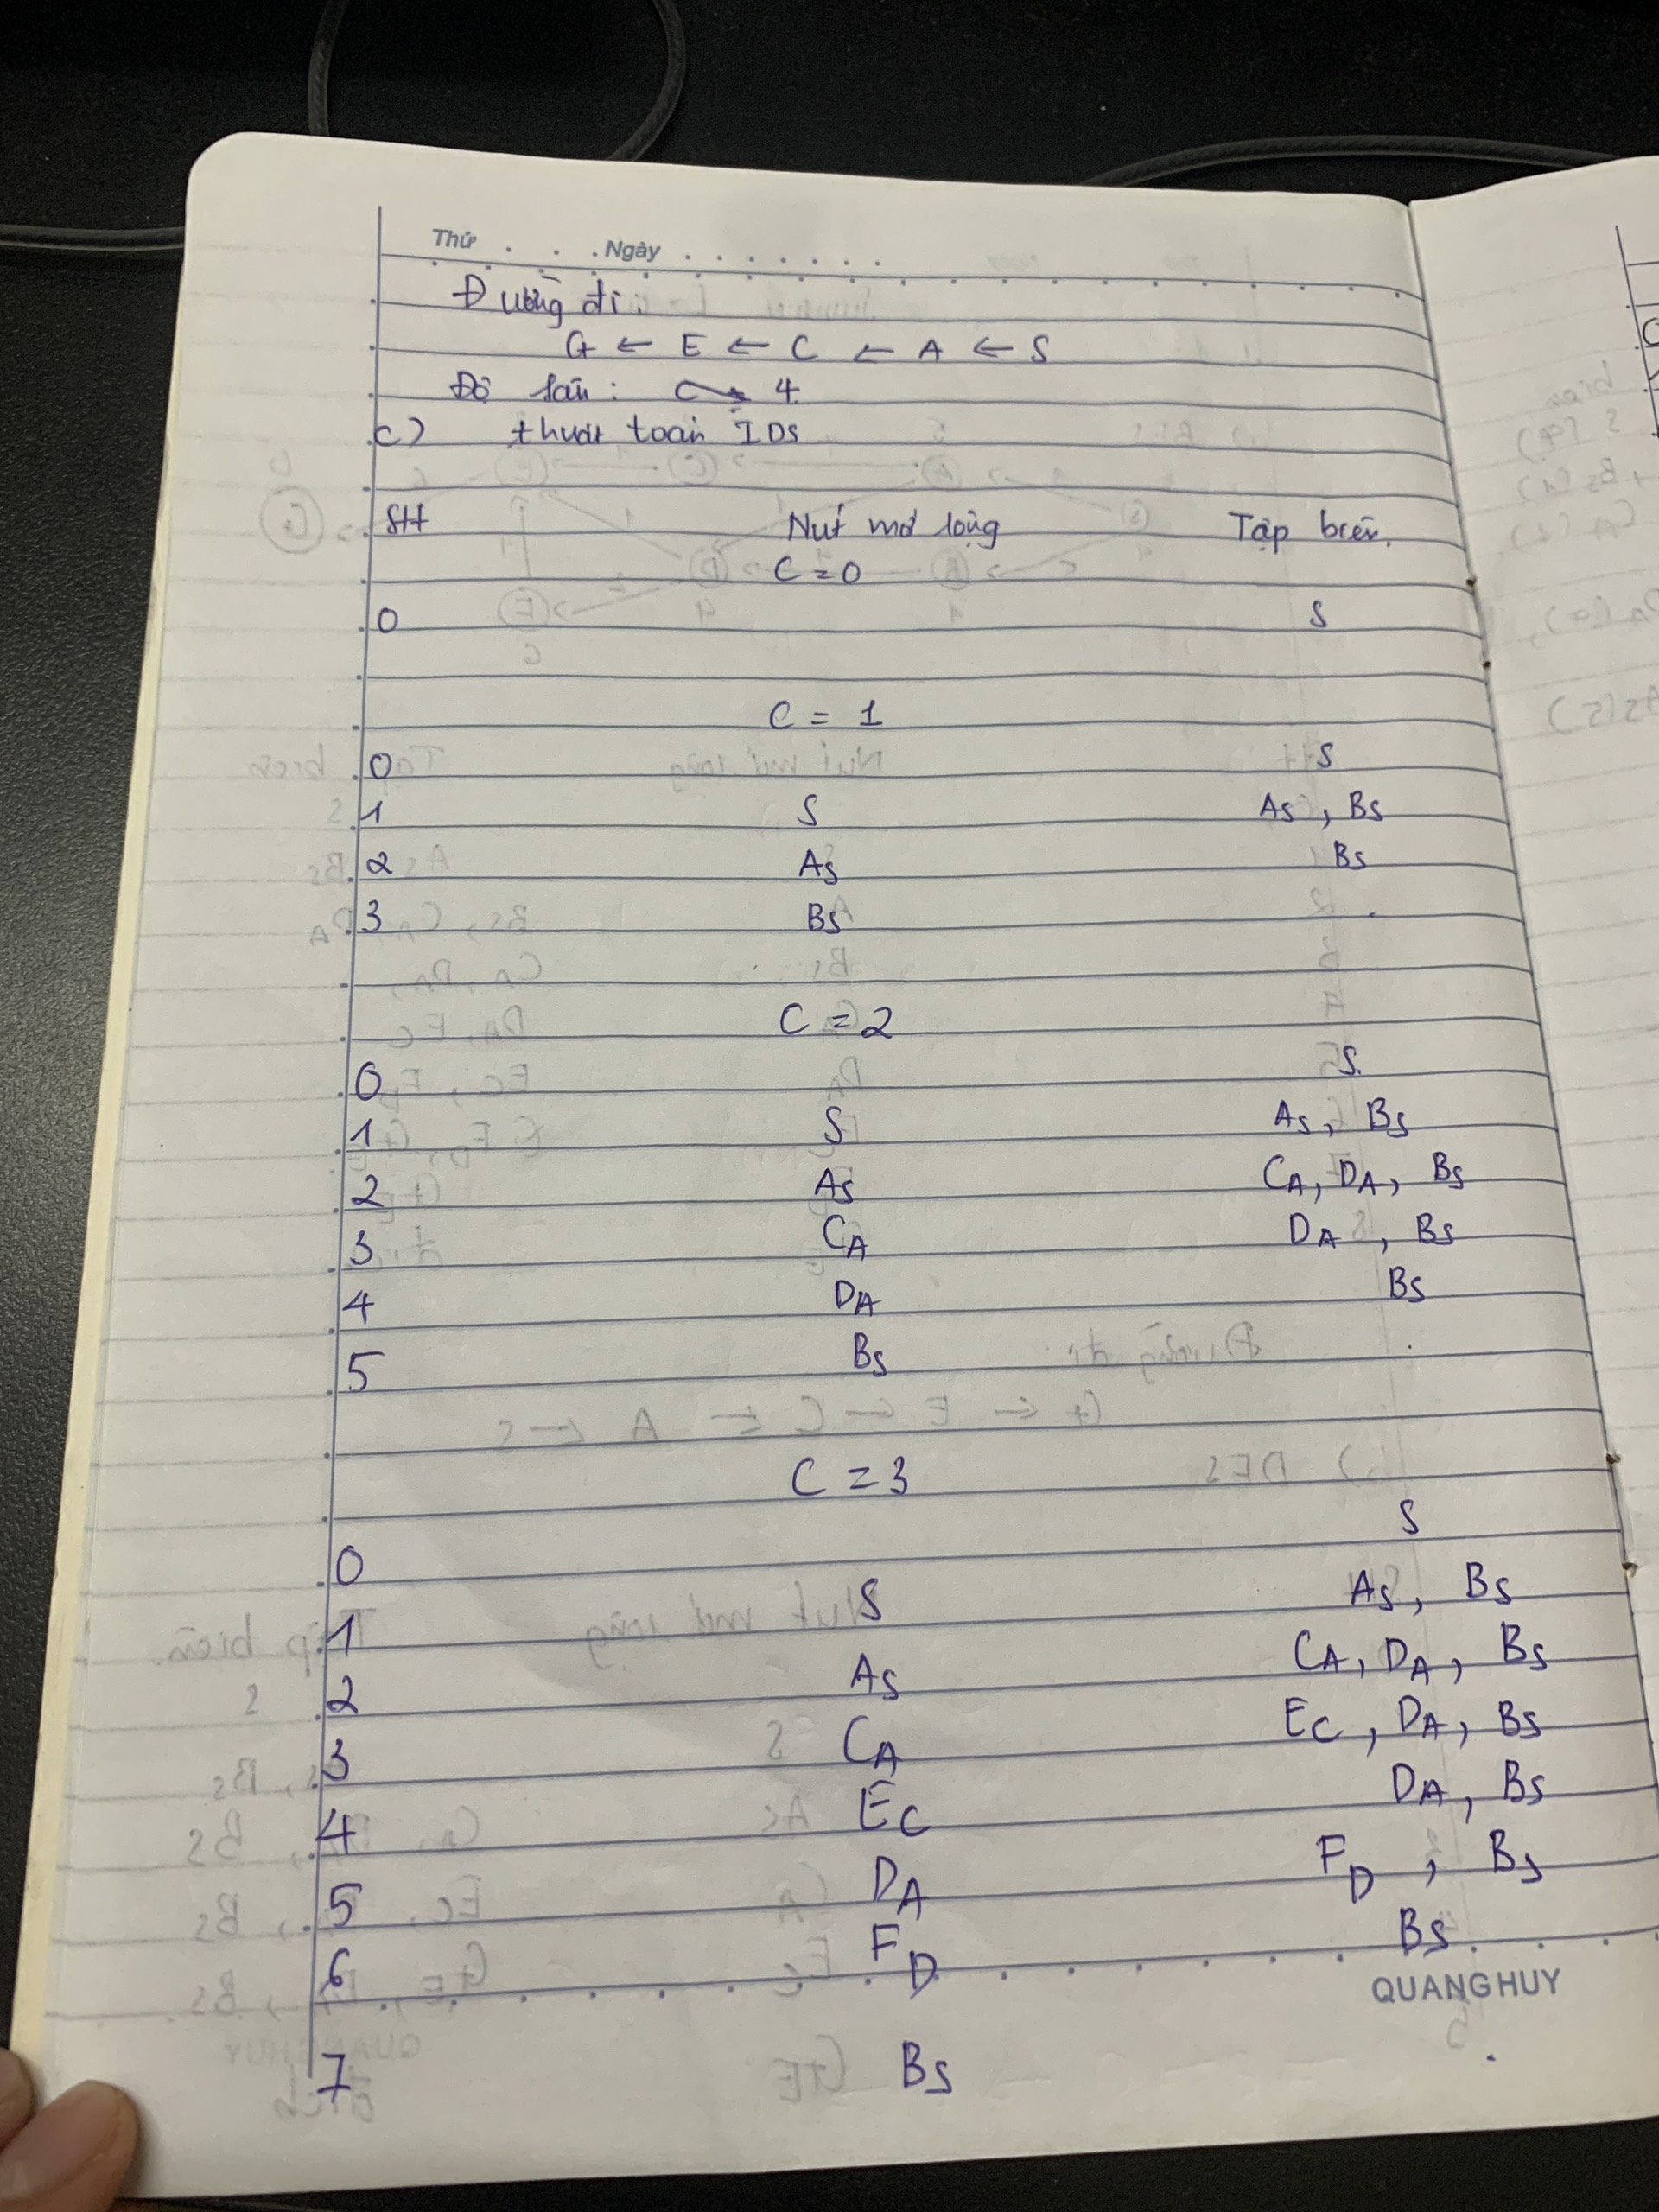 Thứ . . . Ngày . . . . . . .
Đường đi:
G ← E ← C ← A ← S
Độ sâu: 4
c) thuật toán IDS
SH Nút mở rộng Tập biên.
C = 0
0 S
C = 1
0 S
1 S As, Bs
2 As Bs
3 Bs
C = 2
0 S.
1 S As, Bs
2 As CA, DA, Bs
3 CA DA, Bs
4 DA Bs
5 Bs
C = 3
0 S
1 S As, Bs
2 As CA, DA, Bs
3 CA EC, DA, Bs
4 EC DA, Bs
5 DA FD, Bs
6 FD Bs
QUANG HUY
7 Bs